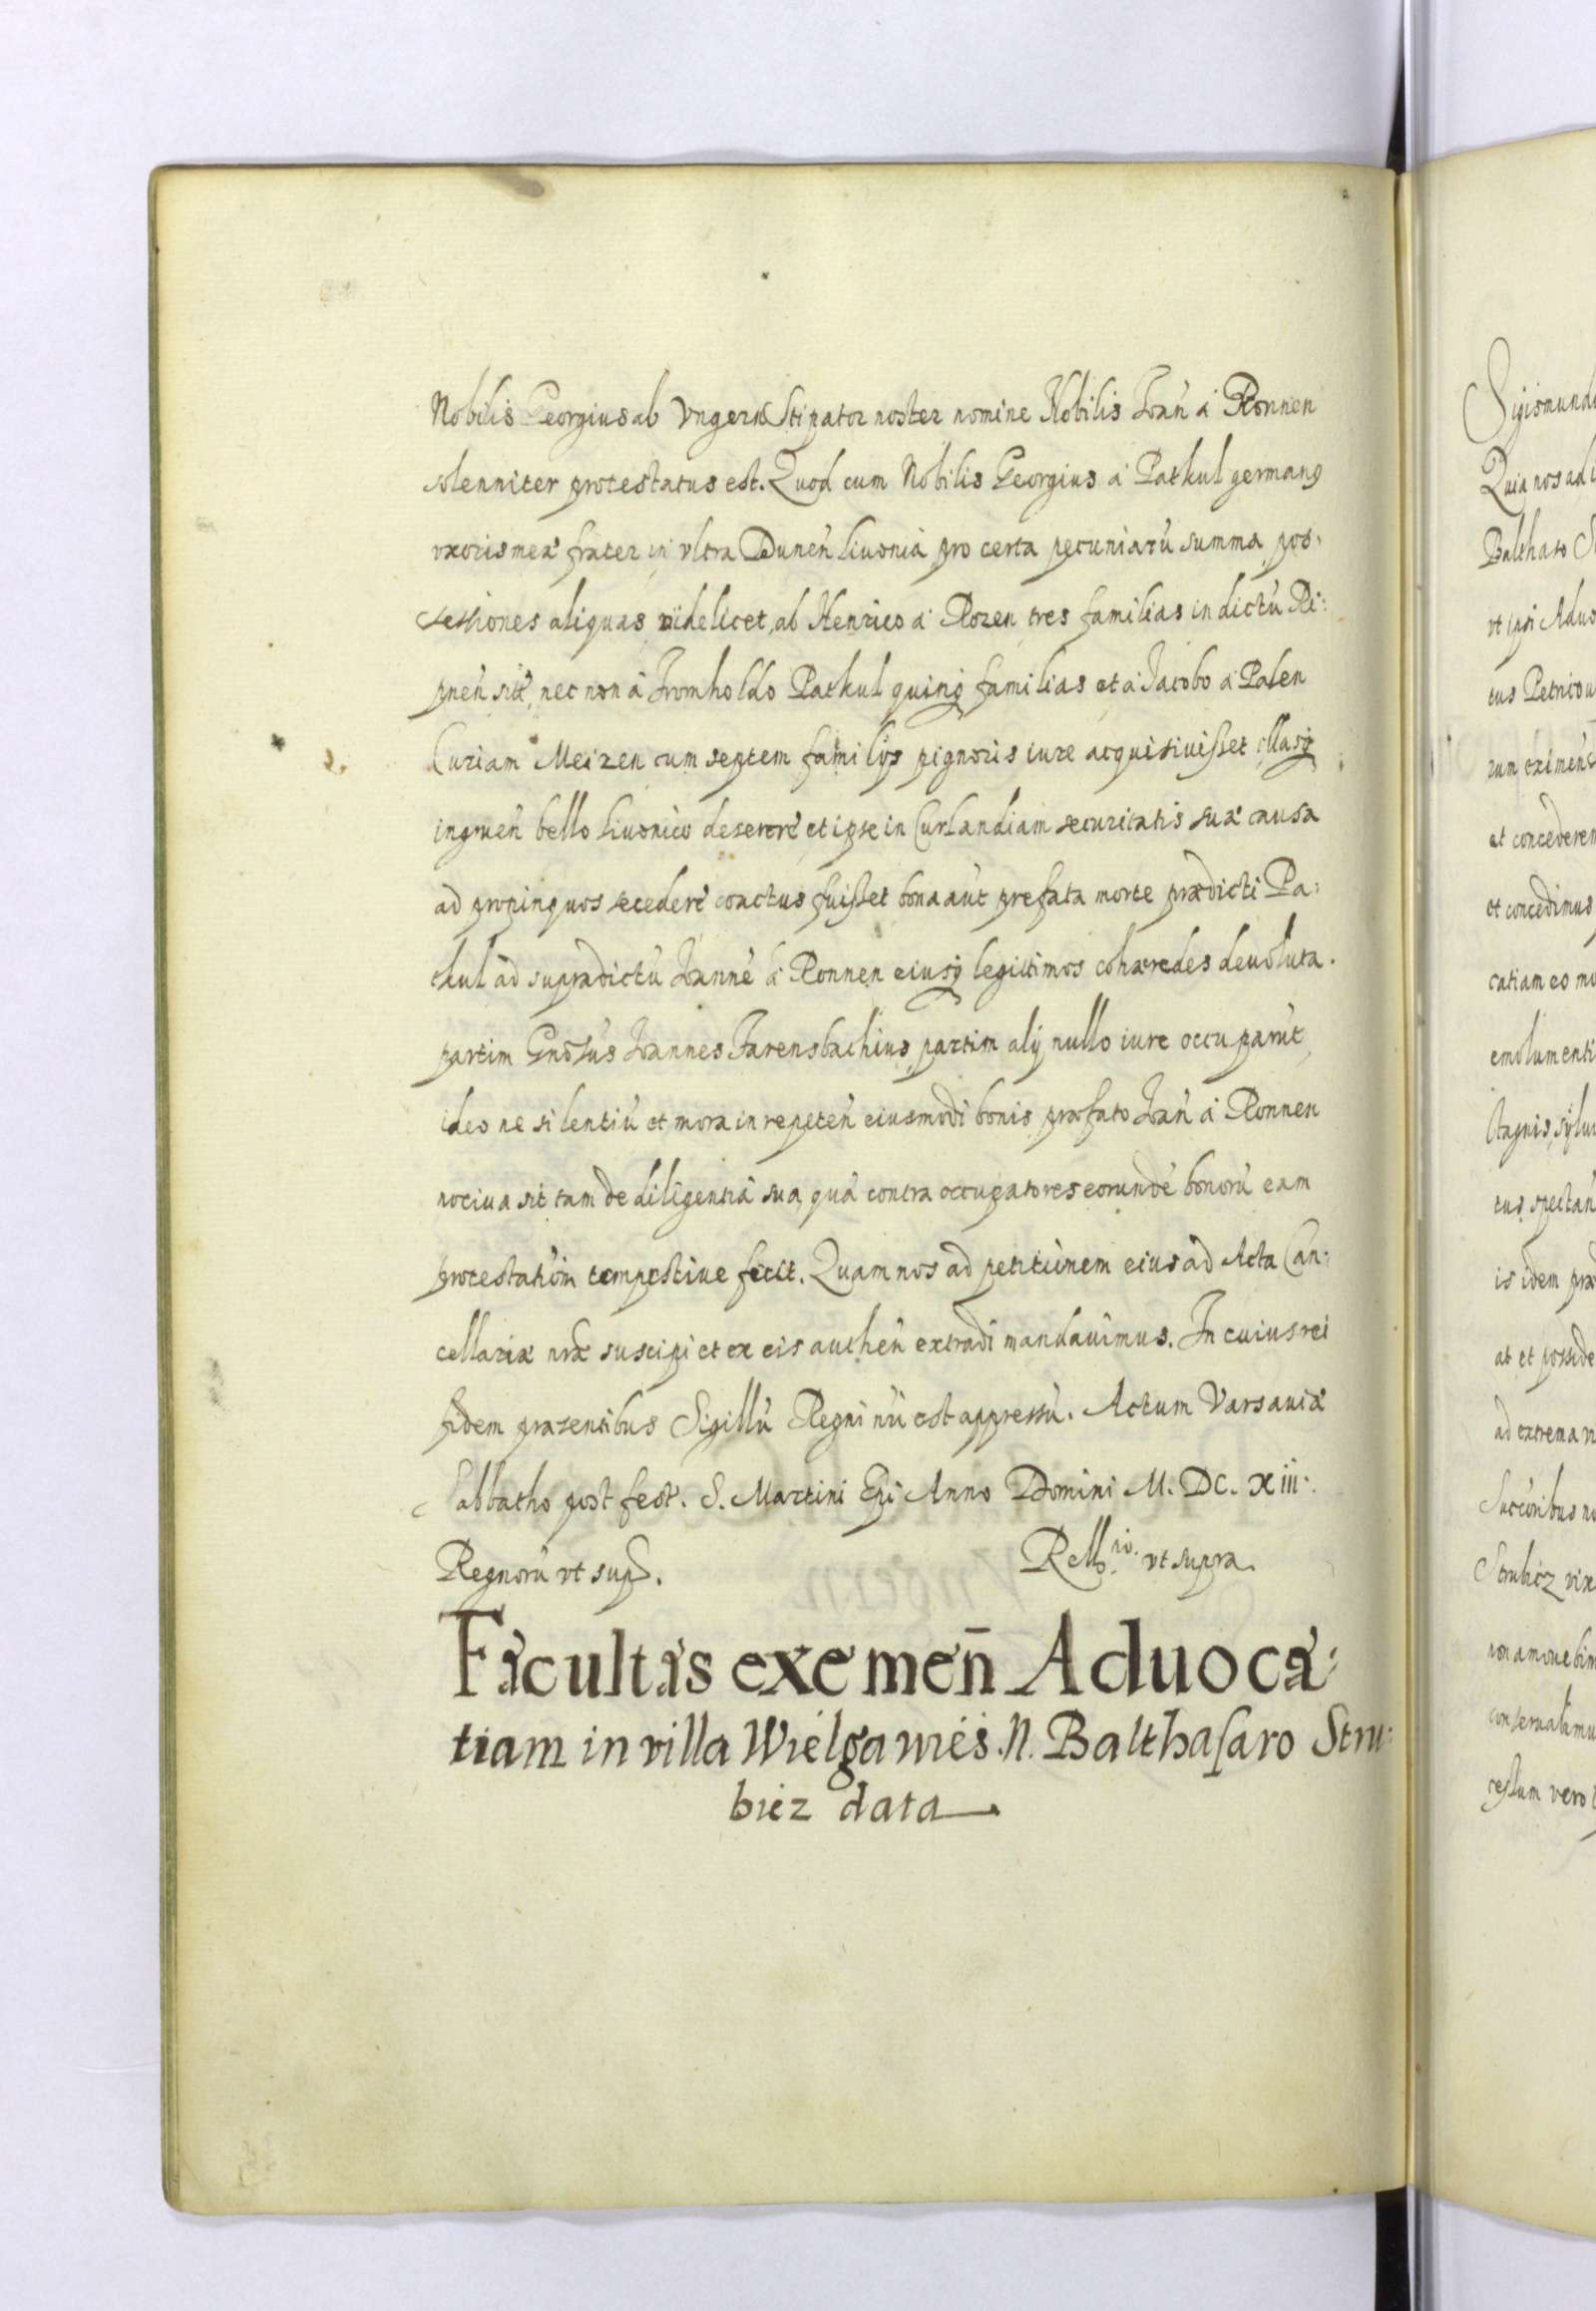 Nobilis Georgius ab Vngern Stipator noster nomine Nobilis Joan̄ à Ronnen
solenniter protestatus est. Quod cum Nobilis Georgius à Patkul germanꝰ
uxoris meæ frater in vltra Dunen̄ Liuonia pro certa pecuniarū summa pos:
sessiones aliquas videlicet, ab Henrico à Rozen tres familias in dictū Ri:
pnen̄ sit̄, nec non à Fromholdo Patkul quinqꝫ familias et à Jacobo à Palen
Curiam Meizen cum septem familijs pignoris iure acquisiuisset illasqꝫ
ingruen̄ bello Liuonico deserere et ipse in Curlandiam securitatis suæ causa
ad propinquos secedere coactus fuisset bona aūt prefata morte prædicti Pa:
tkul ad supradictū Joannē à Ronnen eiusqꝫ legittimos cohæredes deuoluta.
partim Gn̄osus Joannes Farensbachius partim alij nullo iure occuparūt,
ideo ne silentiū et mora in repeten̄ eiusmodi bonis præfato Joan̄ à Ronnen
nociua sit tam de diligentiā sua, quā contra occupatores eorundē bonorū eam
protestatiōm tempestiue fecit. Quam nos ad petitionem eius ad Acta Can:
cellariæ nr̄æ suscipi et ex eis authen̄ extradi mandauimus. In cuius rei
fidem præsentibus Sigillū Regni nr̄i est appressū. Actum Varsauiæ
Sabbatho post fest̄. S. Martini Epi Anno Domini M. DC. XIII.
Regnorū vt sup̄.
Rello^nio. vt supra.
Facultas exemen̄ Aduoca:
tiam in villa Wielgawieś. N. Balthasaro Stru:
bicz data
Sigismund
Quia nos ad
Balthaso
vt ipsi Aduo
tus Petrico
rum eximen̄
et concederem
et concedimus
catiam eo mo
emolumenti
stagnis, sylu
tus spectan̄
is idem præ
at et posside
ad extrema
Succōribus no
Strubicz
non amouebim
conseruabimu
cessum vero